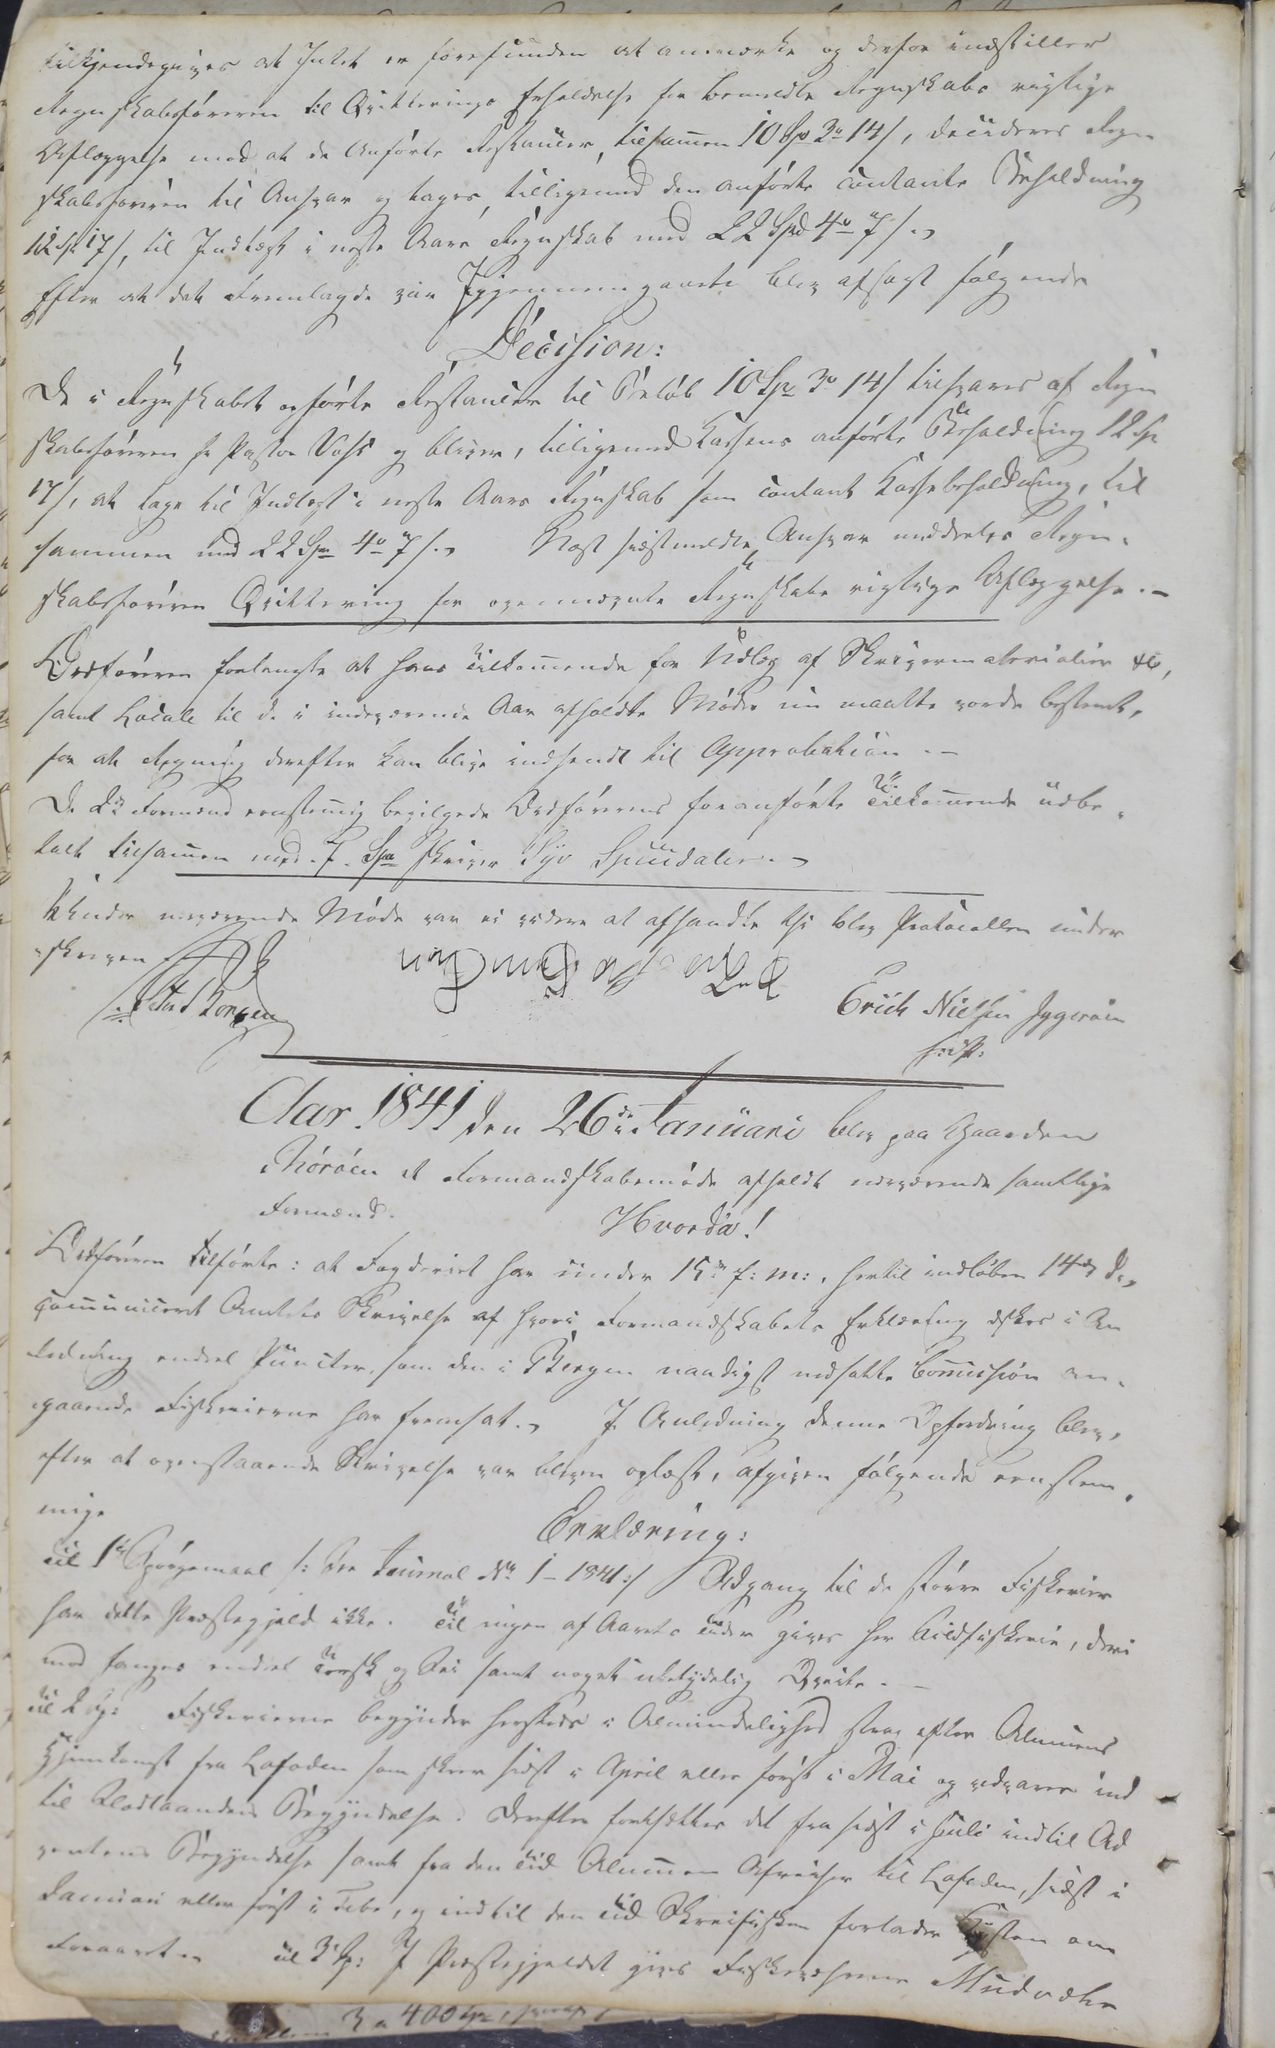 tilkjendegives at Intet er forefunden at anmærke og derfor indstiller
Regnskabsføreren til Qvitterings Erholdelse for bemeldte Regnskabs rigtige
Aflæggelse mod at de anførte Restancer, tilsammen 10 Spd 3 14 s, decideres Regn
skabsføreren til Ansvar og tages, tilligemed den anførte contante Beholdning
12 Sp 17 s, til Indtægt i neste Aars Regnskab med 22 Spd 4 7 s.
Efter at det Fremlagde var igjennemgaaet blev afsagt følgende
Decision:
De i Regnskabet opførte Restancer til Beløb 10 Spd 3 14 s tilsvares af Regn
skabsføreren Hr Pastor Voss og bliver, tilligemed Kassens anførte Beholdning 12 Sp
17 s, at tage til Indtægt i neste Aars Regnskab som contant Kassebeholdning, til
sammen med 22 Spd 4 7 s. Mod sidstmeldte Ansvar meddeles Regn-
skabsføreren Qvittering for ovennævnte Regnskabs rigtige Aflæggelse.-
Ordføreren forlangte at hans Tilkommende for Udlæg af Skrivermaterialier &c,
samt Locale til de i indeværende Aar afholdte Møder nu maatte vorde bestemt,
for at Regning derefter kan blive indsendt til Approbation.-
De Formænd eenstemmig bevilgede Ordførerens foranførte Tilkommende udbe-
talt tilsammen med 7 Spd skriver Syv Speciedaler.-
Under nærværende Møde var ei videre at afhandle thi blev Protocollen under
skreven
Erich Nielsen Iggerøen
Aar 1841 den 26de Januari blev paa Gaarden
Thorøen et Formandskabsmøde afholdt nærværende samtlige
Formænd.
Hvorda!
Ordføreren tilførte: at Fogderiet har under 15de f: m:, hertil indløben 14de d.,
communiceret Amtets Skrivelse af hvori Formandskabets Erklæring æskes i An
ledning endeel Puncter, som den i Bergen naadigst nedsatte Commission an-
gaaende Fiskerierne har fremsat.- I Anledning denne Opfordring blev,
efter at ovenstaaende Skrivelse var bleven oplæst, afgiven følgende eenstem-
mige
Erklæring:
Til 1ste Spørgsmaal /: See Journal No 1 - 1841:/ Adgang til de større Fiskerier
har dette Præstegjeld ikke. Til ingen af Aarets Tider gives her Sildfiskerie, deri
mod fanges endeel Torsk og Sei samt noget ubetydelig Qveite.-
Til 2 Sp: Fiskerierne begynder hersteds i Almindelighed strax efter Almuens
Hjemkomst fra Lofoden som skeer sidst i April eller først i Mai og vedvarer ind
til Slaataandens Begyndelse. Derefter fortsættes det fra sidst i Juli indtil Ad
ventens Begyndelse samt fra den Tid Almuen Afreiser til Lofoden, sidst i
Januari eller først i Febr, og indtil den Tid Skreifisken forlader Kysten om
Foraaret.- Til 3 Sp: I Præstegjeldet gives Fiskeværerne